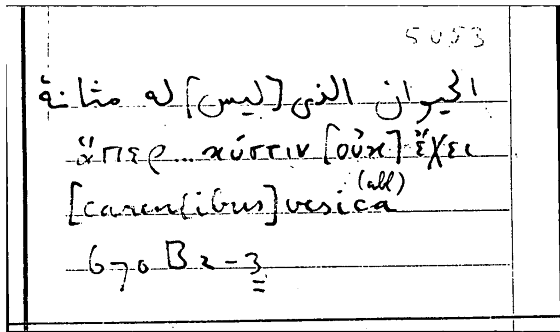 5053
الحيوان الذي [ليس] له مثانة
ἅπερ... κύστιν [οὐκ] ἔχει
(all)
[carentibus] vesica
670 B 2-3